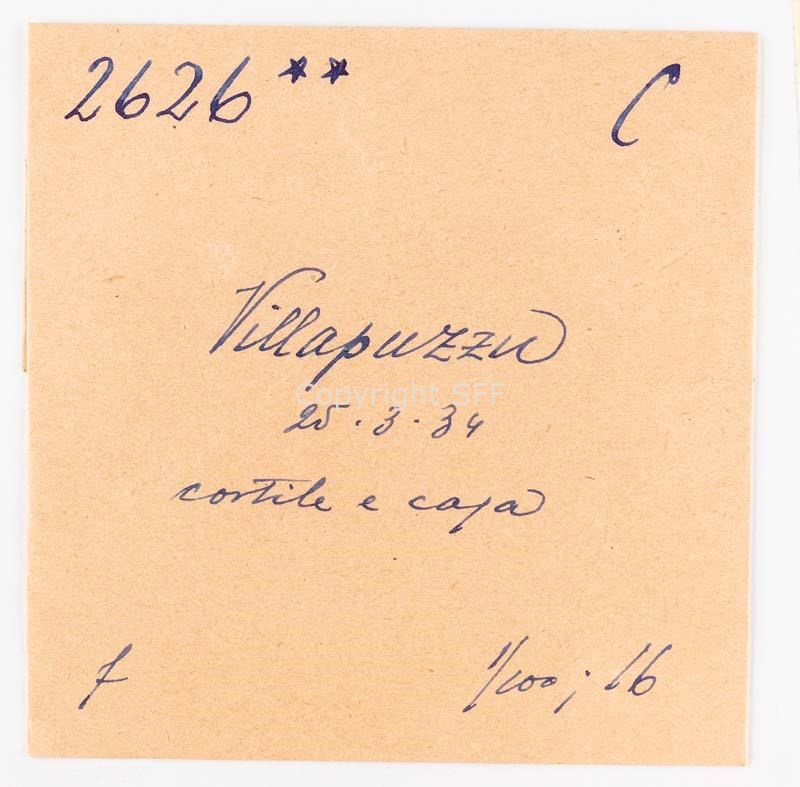 2626** C
Villapuzzu
Copyright SFF
25.3.34
cortile e casa
f 1/100; 16